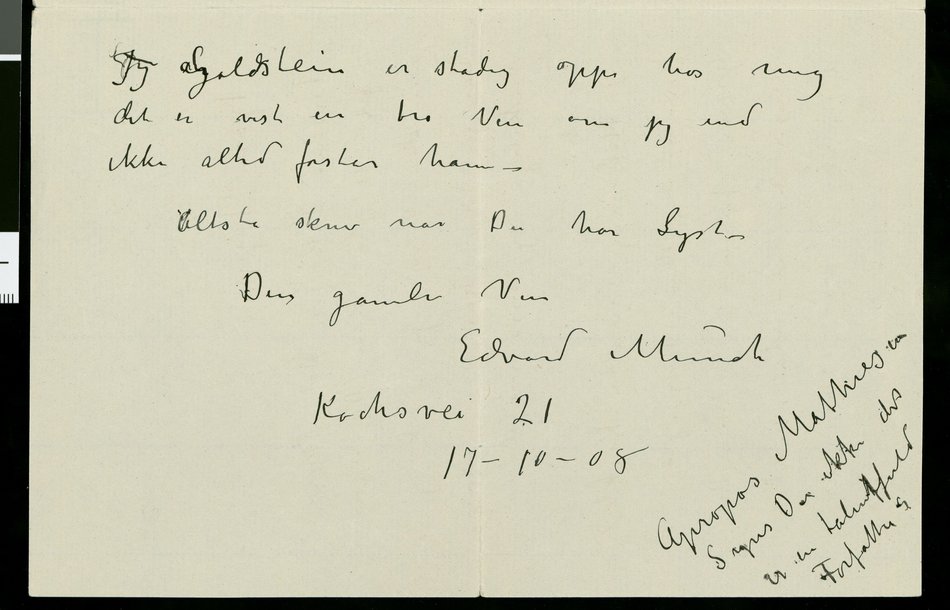 Jeg Goldstein er stadig oppe hos mig
det er vist en tro Ven om jeg end
ikke altid forstår ham –
Altså skriv når Du har Lyst –
Din gamle Ven
Edvard Munch
Kochsvei 21
17–10–08
Apropos Mathiesen
Synes Du ikke det
er en talentfuld
Forfatter?